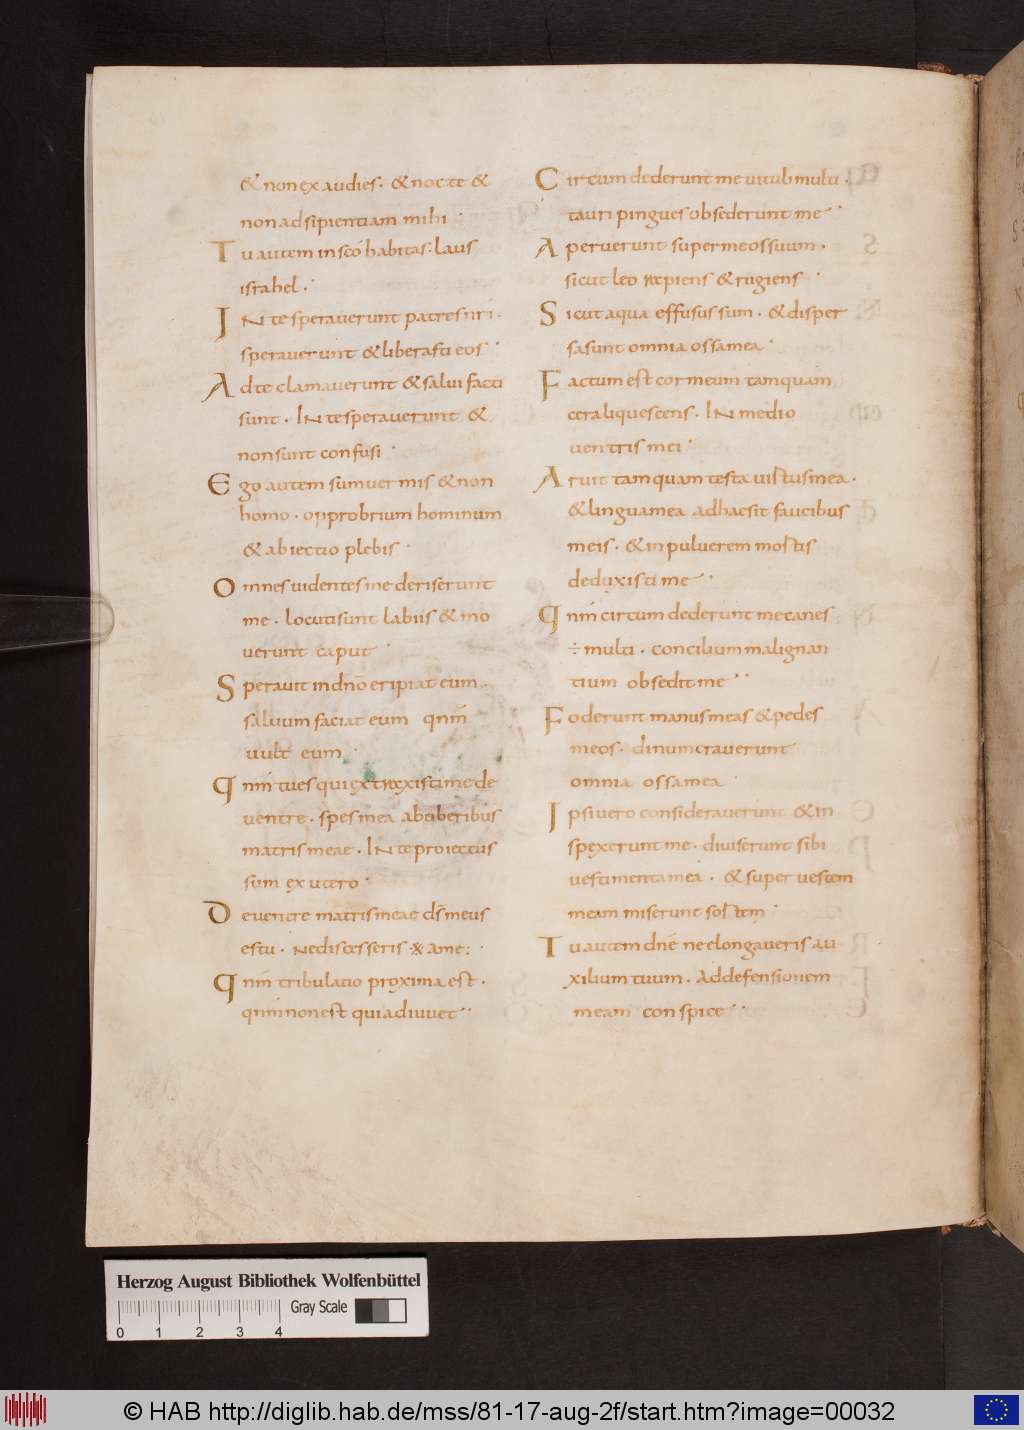 & non exaudies · & nocte &
non ad sipientiam mihi ·
Tu autem in sc̄o habitas : laus
israhel ·
IN te speraverunt patres nr̄i ·
speraverunt & liberasti eos ·
Ad te clamaverunt & salui facti
sunt · IN te speraverunt &
non sunt confusi ·
Ego autem sum uermis & non
homo · opprobrium hominum
& abiectio plebis ·
Omnes uidentes me deriserunt
me · locuti sunt labiis & mo
uerunt caput ·
Sperauit in dn̄o eripiat eum ·
saluum faciat eum qn̄m
uult eum ·
Qn̄m tu es qui extraxisti me de
uentre · spes mea ab uberibus
matris meae · IN te proiectus
sum ex utero ·
De uentre matris meae ds̄ meus
es tu · Ne discesseris a me :
Qn̄m tribulatio proxima est ·
qn̄m non est qui adiuuet ··
Circumdederunt me uituli multi ·
tauri pingues obsederunt me ·
Aperuerunt super me os suum ·
sicut leo rapiens & rugiens ·
Sicut aqua effusus sum · & disper
sa sunt omnia ossa mea ·
Factum est cor meum tamquam
cera liquescens · IN medio
uentris mei ·
Aruit tamquam testa uirtus mea ·
& lingua mea adhaesit faucibus
meis · & in puluerem mortis
deduxisti me ·
Qn̄m circumdederunt me canes
÷ multi · concilium malignan
tium obsedit me ··
Foderunt manus meas & pedes
meos · dinumerauerunt
omnia ossa mea ·
Ipsi uero considerauerunt & in
spexerunt me · diuiserunt sibi
uestimenta mea · & super uestem
meam miserunt sortem ·
Tu autem dn̄e ne elongaueris au
xilium tuum · Ad defensionem
meam conspice ··
Herzog August Bibliothek Wolfenbüttel
Gray Scale
0 1 2 3 4
© HAB http://diglib.hab.de/mss/81-17-aug-2f/start.htm?image=00032